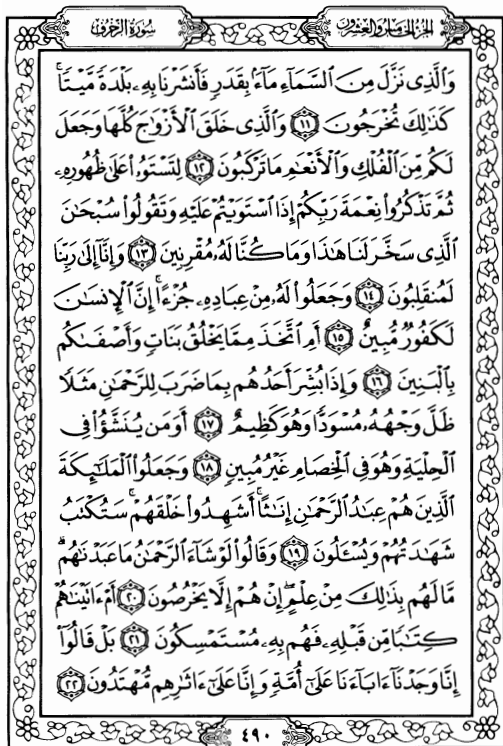 سُورَةُ الزُّخْرُفِ الجُزْءُ الخَامِسُ وَالعِشْرُونَ
وَالَّذِى نَزَّلَ مِنَ السَّمَاءِ مَاءً بِقَدَرٍ فَأَنشَرْنَا بِهِۦ بَلْدَةً مَّيْتًا ۚ
كَذَٰلِكَ تُخْرَجُونَ ١١ وَالَّذِى خَلَقَ الْأَزْوَٰجَ كُلَّهَا وَجَعَلَ
لَكُم مِّنَ الْفُلْكِ وَالْأَنْعَٰمِ مَا تَرْكَبُونَ ١٢ لِتَسْتَوُۥا عَلَىٰ ظُهُورِهِۦ
ثُمَّ تَذْكُرُوا نِعْمَةَ رَبِّكُمْ إِذَا اسْتَوَيْتُمْ عَلَيْهِ وَتَقُولُوا سُبْحَٰنَ
الَّذِى سَخَّرَ لَنَا هَٰذَا وَمَا كُنَّا لَهُۥ مُقْرِنِينَ ١٣ وَإِنَّا إِلَىٰ رَبِّنَا
لَمُنقَلِبُونَ ١٤ وَجَعَلُوا لَهُۥ مِنْ عِبَادِهِۦ جُزْءًا ۚ إِنَّ الْإِنسَٰنَ
لَكَفُورٌ مُّبِينٌ ١٥ أَمِ اتَّخَذَ مِمَّا يَخْلُقُ بَنَاتٍ وَأَصْفَىٰكُم
بِالْبَنِينَ ١٦ وَإِذَا بُشِّرَ أَحَدُهُم بِمَا ضَرَبَ لِلرَّحْمَٰنِ مَثَلًا
ظَلَّ وَجْهُهُۥ مُسْوَدًّا وَهُوَ كَظِيمٌ ١٧ أَوَمَن يُنَشَّؤُا فِى
الْحِلْيَةِ وَهُوَ فِى الْخِصَامِ غَيْرُ مُبِينٍ ١٨ وَجَعَلُوا الْمَلَٰئِكَةَ
الَّذِينَ هُمْ عِبَٰدُ الرَّحْمَٰنِ إِنَٰثًا ۚ أَشَهِدُوا خَلْقَهُمْ ۚ سَتُكْتَبُ
شَهَٰدَتُهُمْ وَيُسْـَٔلُونَ ١٩ وَقَالُوا لَوْ شَاءَ الرَّحْمَٰنُ مَا عَبَدْنَٰهُم ۗ
مَّا لَهُم بِذَٰلِكَ مِنْ عِلْمٍ ۖ إِنْ هُمْ إِلَّا يَخْرُصُونَ ٢٠ أَمْ ءَاتَيْنَٰهُمْ
كِتَٰبًا مِّن قَبْلِهِۦ فَهُم بِهِۦ مُسْتَمْسِكُونَ ٢١ بَلْ قَالُوا
إِنَّا وَجَدْنَا ءَابَاءَنَا عَلَىٰ أُمَّةٍ وَإِنَّا عَلَىٰ ءَاثَٰرِهِم مُّهْتَدُونَ ٢٢
٤٩٠